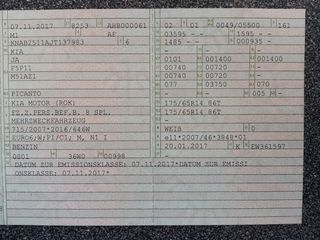 07.11.2017 8253 AHB000061 02 01 0049/05500 161
M1 AF 03595 -- 1595 --
KNAB2511AJT137983 6 1485 -- 000935 -
KIA - - -
JA 0101 001400 001400
F5P11 00740 00720 --
M51AZ1 00740 00720 --
77 03750 070
PICANTO - - 005 -
KIA MOTOR (ROK) 175/65R14 86T
FZ.Z.PERS.BEF.B. 8 SPL. 175/65R14 86T
MEHRZWECKFAHRZEUG -
715/2007*2016/646W WEIß 0
EURO6;W;PI/CI; M, N1 I e11*2007/46*3848*01
BENZIN 20.01.2017 K EW361597
0001 36W0 00998 -
DATUM ZUR EMISSIONSKLASSE: 07.11.2017*DATUM ZUR EMISSI
ONSKLASSE: 07.11.2017*